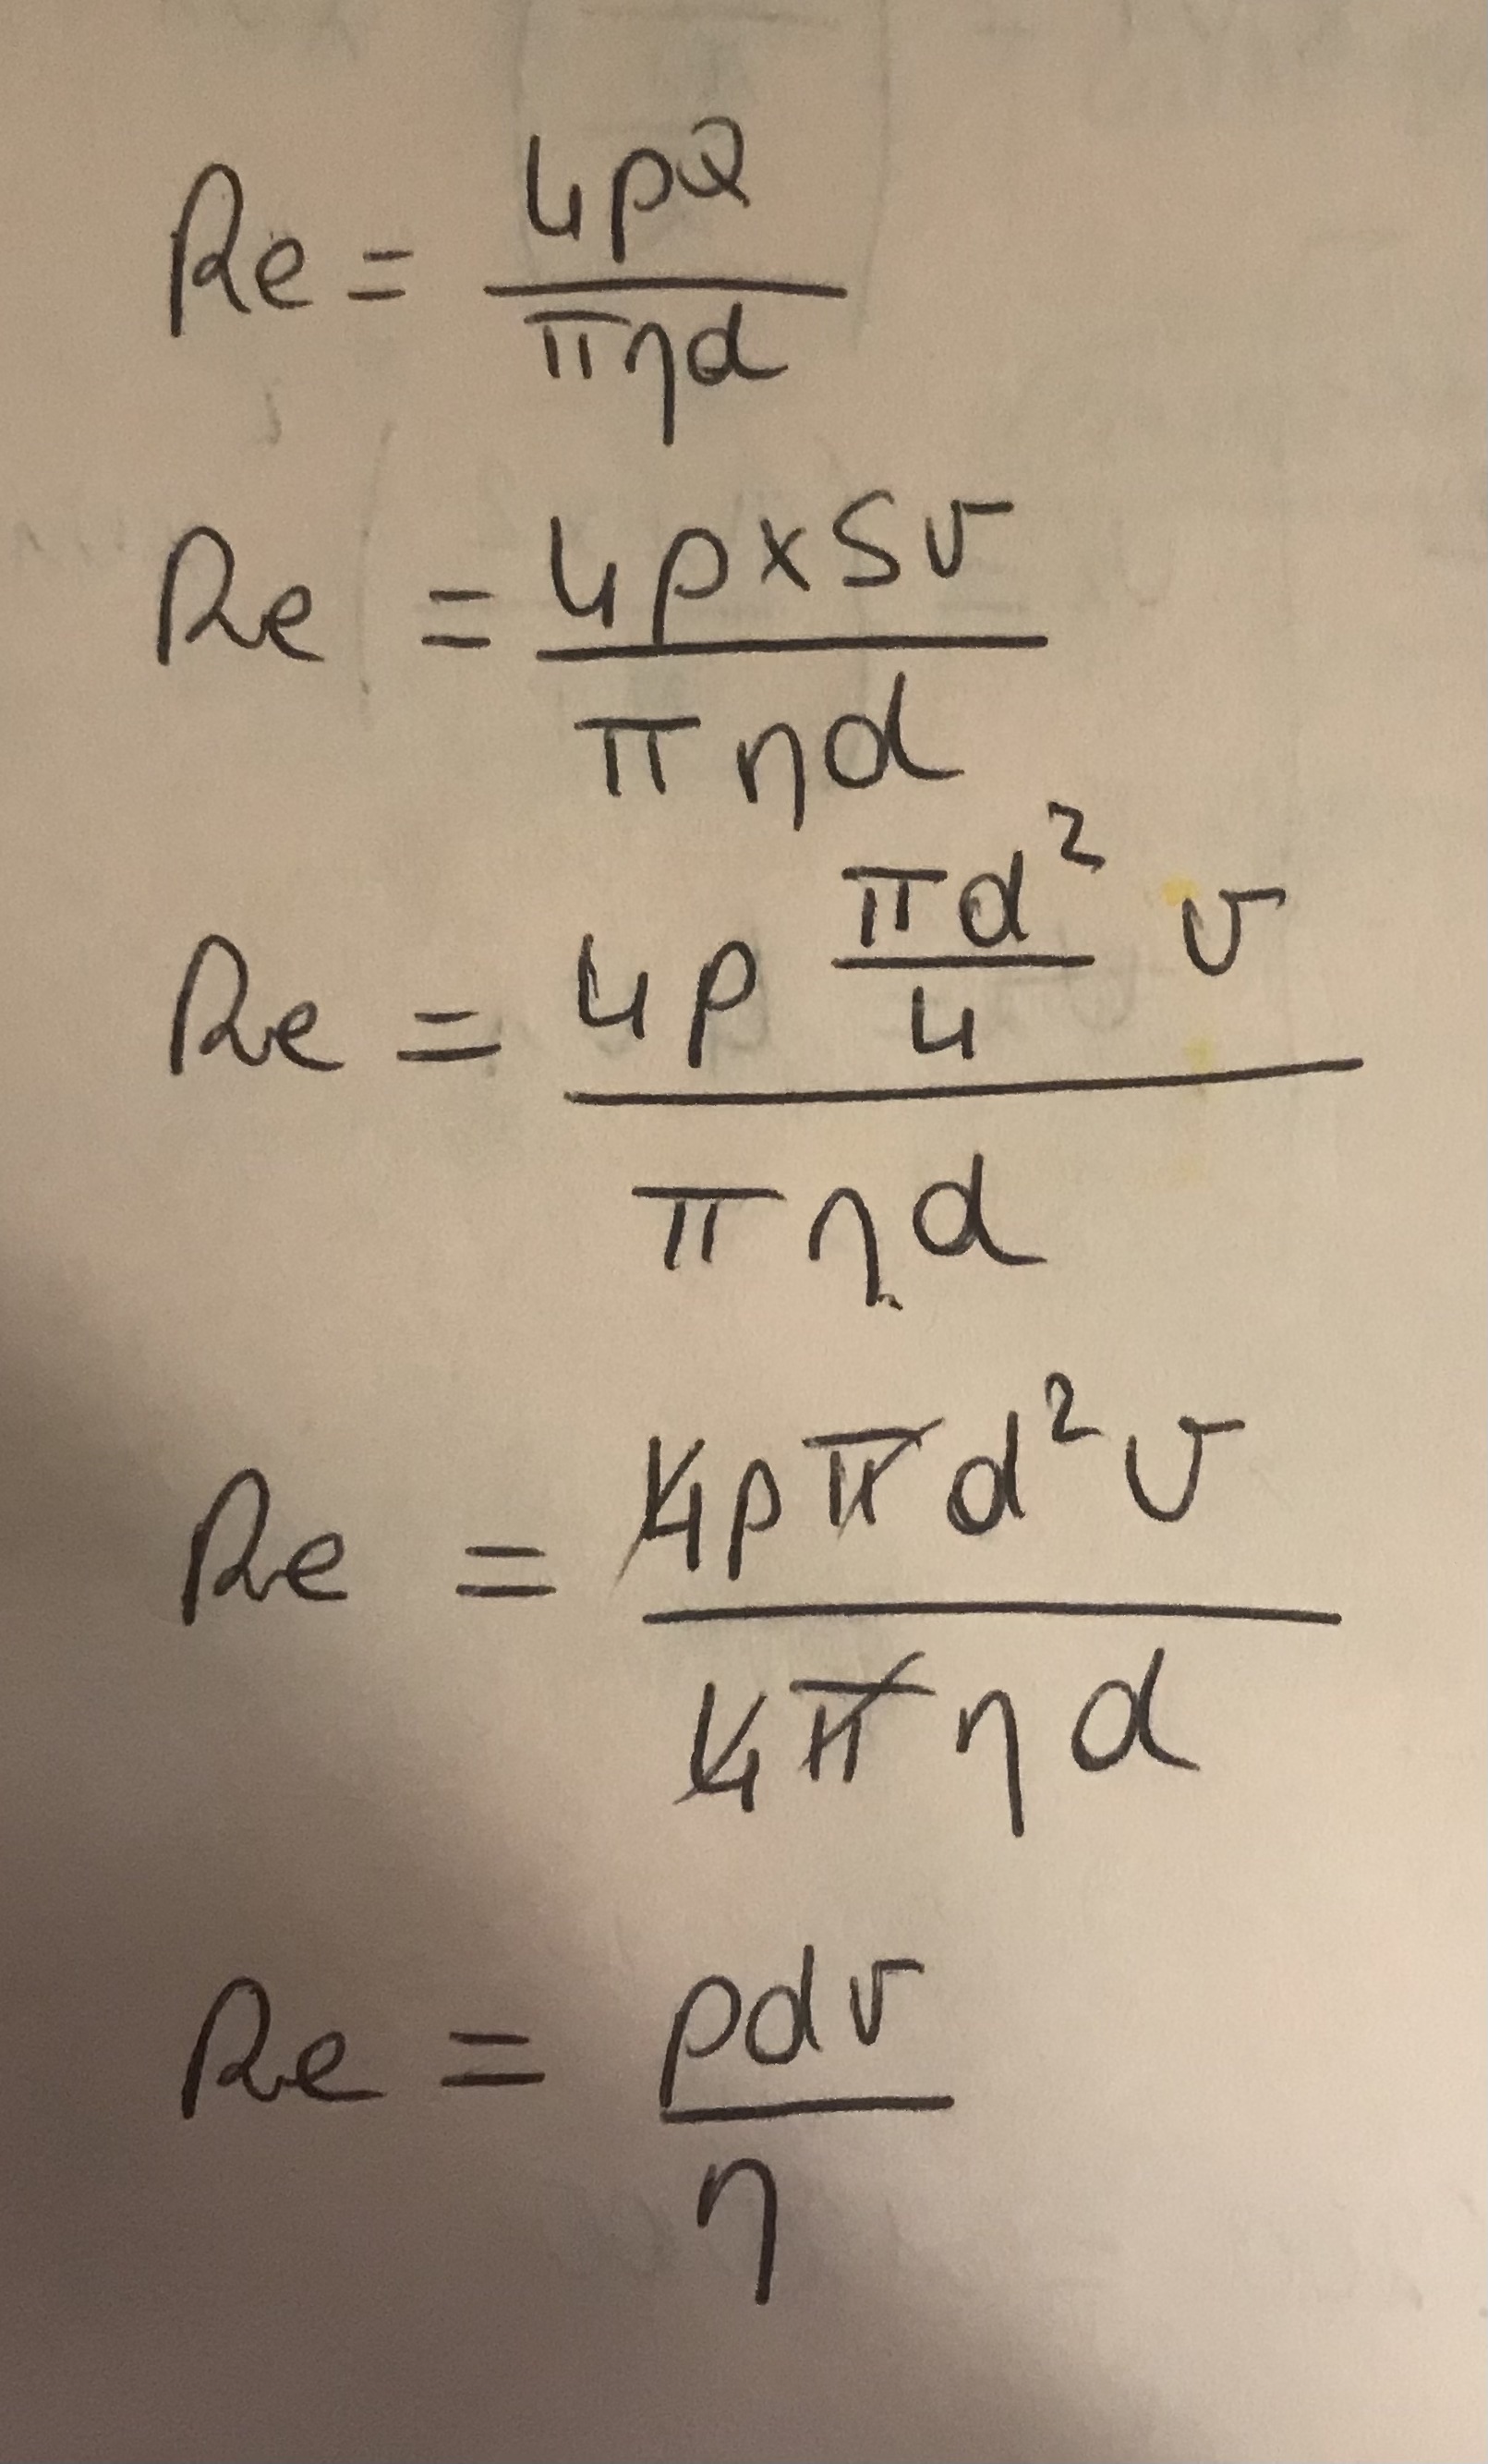 Re = 4ρQ / πηd
Re = 4ρ×Sv / πηd
Re = 4ρ πd²/4 v / πηd
Re = 4ρπd²v / 4πηd
Re = ρdv / η